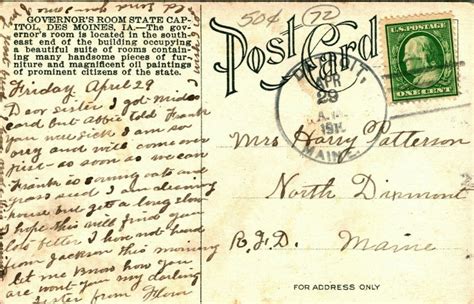 GOVERNOR'S ROOM STATE CAP-
ITOL, DES MOINES, IA.—The gov-
ernor's room is located in the south-
east end of the building occupying
a beautiful suite of rooms contain-
ing many handsome pieces of fur-
niture and magnificent oil paintings
of prominent citizens of the state.
Friday April 29
Dear Sister I got
card but Abbie told Frank
you were sick I am so
sorry and will come over
just as soon as we can
Frank is sowing oats and
grass seed I am cleaning
house but get a long slow
I hope this will find you
lots better I have not heard
from Jackson this morning
let me know how you
are wont you my darling
Sister from
50¢
72
Post Card
DETROIT
APR
29
A.M.
MAINE
U.S. POSTAGE
Mrs Harry Patterson
North Dixmont
R.F.D. Maine
FOR ADDRESS ONLY